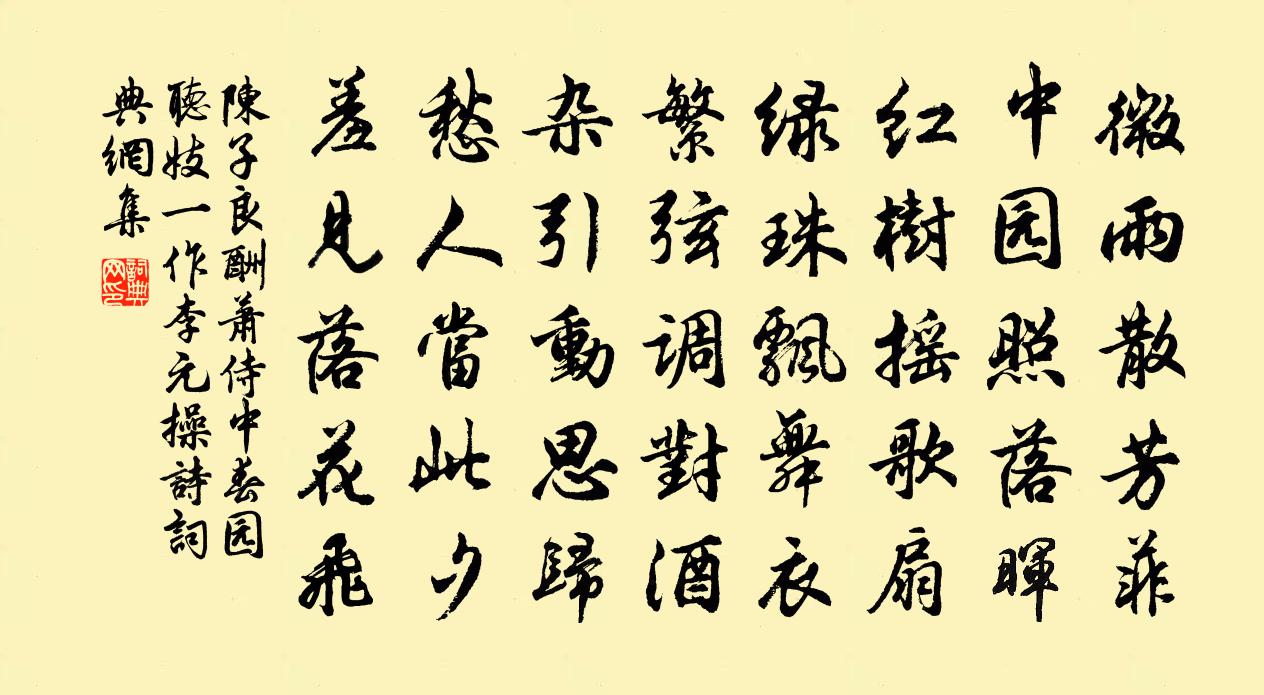 微雨散芳菲
中园照落暉
红樹摇歌扇
绿珠飄舞衣
繁弦调對酒
杂引動思歸
愁人當此夕
羞见落花飛
陳子良酬萧侍中春园
聽妓一作李元操詩詞
典網集
詞典
网印